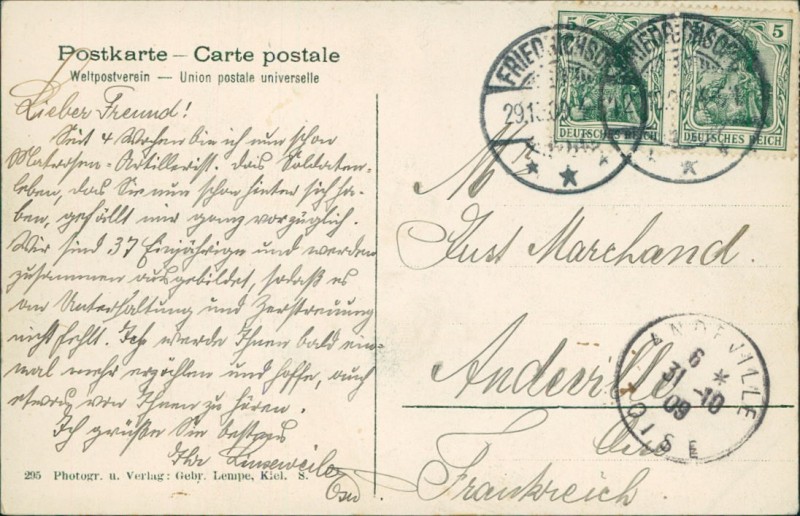 Postkarte – Carte postale
Weltpostverein — Union postale universelle
Lieber Freund!
Seit 4 Wochen bin ich nun schon
Matrosen-Artillerist. Das Soldaten-
leben, das Sie nun schon hinter sich ha-
ben, gefällt mir ganz vorzüglich.
Wir sind 37 Einjährige und werden
zusammen ausgebildet, sodaß es
an Unterhaltung und Zerstreuung
nicht fehlt. Ich werde Ihnen bald ein-
mal mehr erzählen und hoffe, auch
etwas von Ihnen zu hören.
Ich grüße Sie bestens
Ihr
295 Photogr. u. Verlag: Gebr. Lempe, Kiel. S.
5
5
DEUTSCHES REICH
DEUTSCHES REICH
FRIEDRICHSO
29.10.09
M
Just Marchand.
Andeville
Oise
Frankreich.
ANDEVILLE
6 *
31 -10
09
OISE